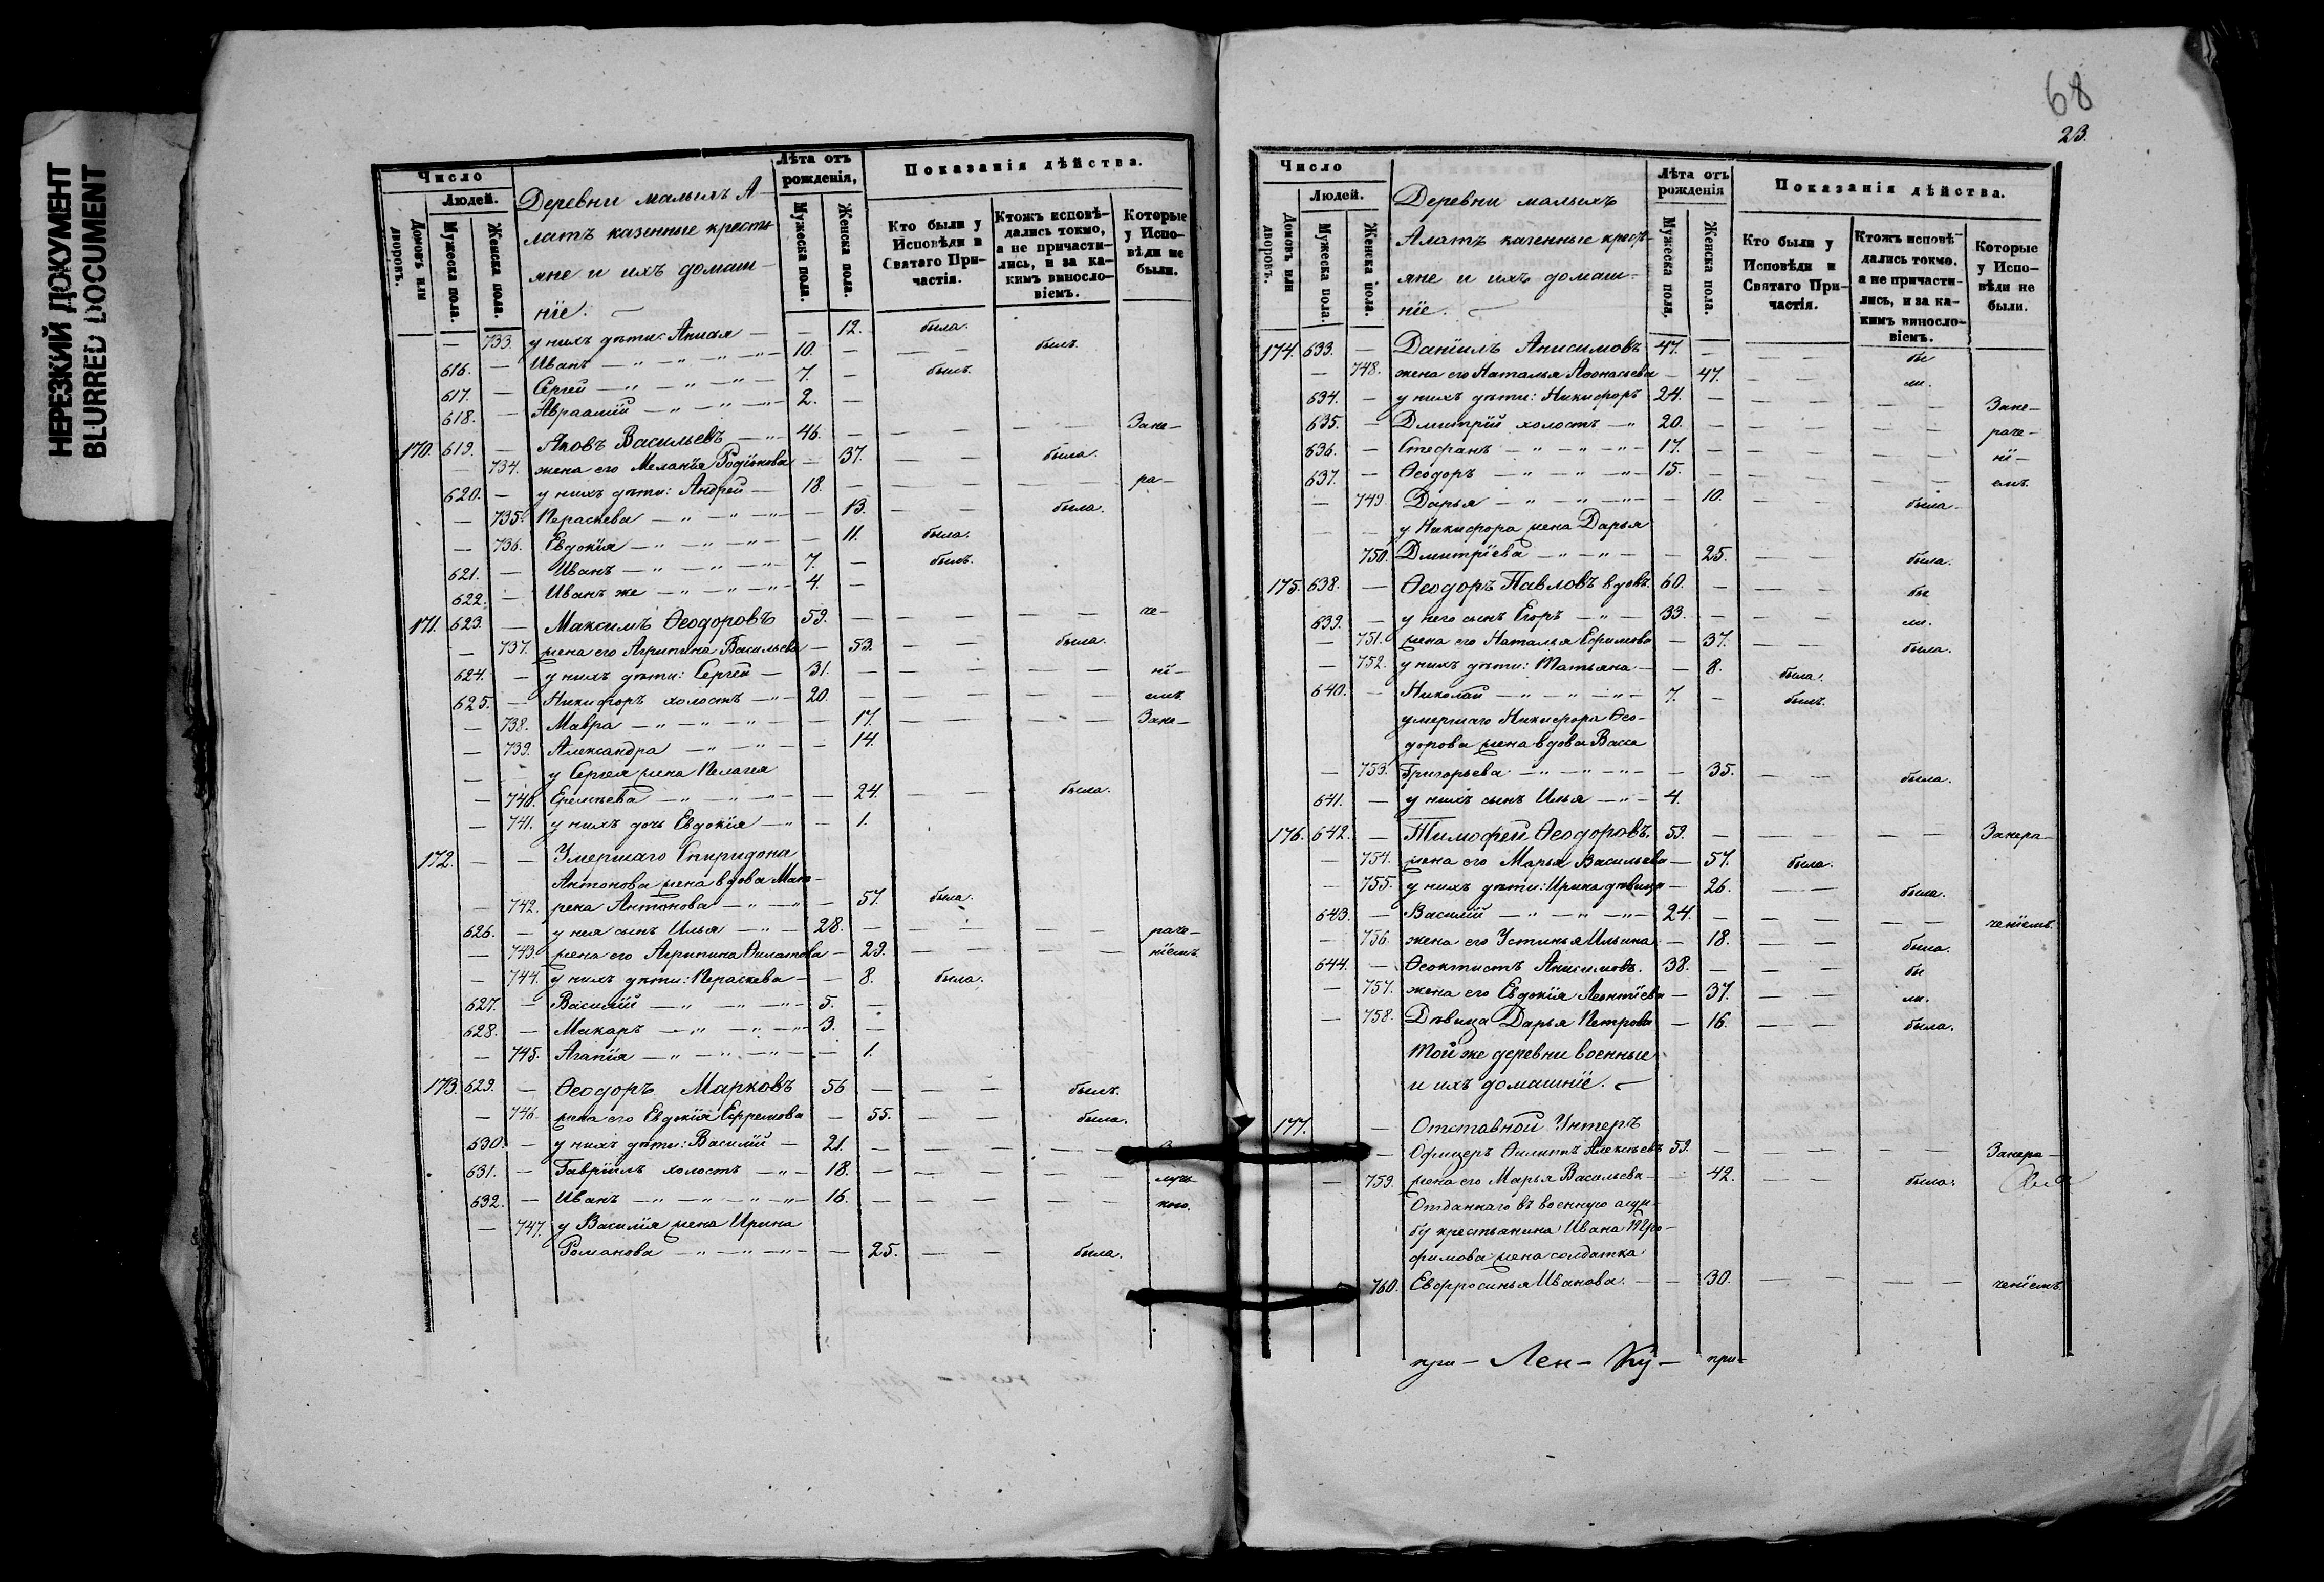 НЕРЕЗКИЙ ДОКУМЕНТ
BLURRED DOCUMENT
Число
Людей.
Домовъ или дворовъ.
Мужеска пола.
Женска пола.
Деревни малыхъ А-
латъ казенные кресть-
яне и ихъ домаш-
ніе.
Лѣта отъ рожденія,
Мужеска пола.
Женска пола.
Показанія дѣйства.
Кто были у Исповѣди и Святаго При-частія.
Ктожъ исповѣ-дались токмо, а не причасти-лись, и за ка-кимъ винословіемъ.
Которые у Испо-вѣди не были.
— 733. у нихъ дѣти: — — 12. была.
616. — Иванъ — „ — „ — „ — 10. — — — былъ.
617. — Сергей — „ — „ — „ — 7. — былъ.
618. — Авраамій — „ — „ — „ — 2. —
170. 619. — Яковъ Васильевъ — „ — 46. — — — — — Зане-
— 734. жена его Меланія Родіонова — 37. — — была.
620. — у нихъ дѣти: Андрей — 18. — — — — — ра-
— 735. Пераскева — „ — „ — „ — — 13. — — была.
— 736. Евдокія — „ — „ — „ — — 11. была.
621. — Иванъ — „ — „ — „ — 7. — былъ.
622. — Иванъ же — „ — „ — „ — 4. —
171. 623. — Максимъ Ѳеодоровъ 59. — — — — — че-
— 737. жена его Агрипина Васильева — 53. — — была.
624. — у нихъ дѣти: Сергей — 31. — — — — — ні-
625. — Никифоръ холостъ — „ — 20. — — — — емъ
— 738. Мавра — „ — „ — „ — — 17. — — — — Зане-
— 739. Александра — „ — „ — — 14.
— — у Сергея жена Пелагея
— 740. Еремѣева — „ — „ — „ — — 24. — — была.
— 741. у нихъ дочь Евдокія — „ — 1.
172. — — Умершаго Спиридона
Антонова жена вдова Мат-
— 742. рена Антонова — „ — „ — 57. была.
626. — у нея сынъ Илья — „ — 28. — — — — — раче-
— 743. жена его Агрипина Филатова — 29. — — — — ніемъ.
— 744. у нихъ дѣти: Пераскева — — 8. была.
627. — Василій — „ — „ — „ — 5. —
628. — Макаръ — „ — „ — „ — 3. —
— 745. Агапія — „ — „ — „ — — 1.
173. 629. — Ѳеодоръ Марковъ 56 — — — былъ.
— 746. жена его Евдокія Ефремова — 55. — — была.
630. — у нихъ дѣти: Василій — 21. — — — — —
631. — Гавріилъ холостъ — „ — 18. — — — — —
632. — Иванъ — „ — „ — „ — „ — 16. — — — — —
— 747. у Василія жена Ирина
Романова — „ — „ — „ — — 25. — — была.
68
23.
Число
Людей.
Домовъ или дворовъ.
Мужеска пола.
Женска пола.
Деревни малыхъ
Алатъ казенные кресть-
яне и ихъ домаш-
ніе.
Лѣта отъ рожденія
Мужеска пола,
Женска пола.
Показанія дѣйства.
Кто были у Исповѣди и Святаго При-частія.
Ктожъ исповѣ-дались токмо. а не причасти-лись, и за ка-кимъ винословіемъ.
Которые у Испо-вѣди не были.
174. 633. — Даніилъ Анисимовъ 47. — — — бы
— 748. жена его Наталья Аѳонасьева — 47. — — ли.
634. — у нихъ дѣти: Никифоръ 24. — — — — — Зане-
635. — Дмитрій холостъ — „ 20. — — — — — раче-
636. — Стефанъ — „ — „ — „ — 17. — — — — — ні-
637. — Ѳеодоръ — „ — „ — „ — 15. — — — — — емъ.
— 749. Дарья — „ — „ — „ — — 10. — — была.
— — у Никифора жена Дарья
750. Дмитріева — „ — „ — — 25. — — была.
175. 638. — Ѳеодоръ Павловъ вдовъ. 60. — — — бы
639. — у него сынъ Егоръ — „ — 33. — — — ли.
— 751. жена его Наталья Ефимова — 37. — — была.
— 752. у нихъ дѣти: Татьяна — — 8. была.
640. — Николай — „ — „ — „ — 7. — былъ.
умершаго Никифора Ѳео-
дорова жена вдова Васса
— 753. Григорьева — „ — „ — „ — — 35. — — была.
641. — у нихъ сынъ Илья — „ — 4.
176. 642. — Тимофей Ѳеодоровъ. 59. — — — — — Занера-
— 754. жена его Марья Васильева — 57. была.
— 755. у нихъ дѣти: Ирина дѣвица — 26. — — была.
643. — Василій — „ — „ — „ — 24. — — — — — ченіемъ.
— 756. жена его Устинья Ильина — 18. — — была.
644. — Ѳеоктистъ Анисимовъ. 38. — — — бы
— 757. жена его Евдокія Леонтіева — 37. — — ли.
— 758. Дѣвица Дарья Петрова — 16. — — была.
Той же деревни военные
и ихъ домашніе.
177. — Отставной Унтеръ
— Офицеръ Филипъ Алексѣевъ 59. — — — — — Занера-
— 759. жена его Марья Васильева — — 42. — — была.
Отданнаго въ военную служ-
бу крестьянина Ивана Тро-
фимова жена солдатка
760. Евфросинья Иванова. — — 30. — — — — ченіемъ.
при — Лен — Ку — при-